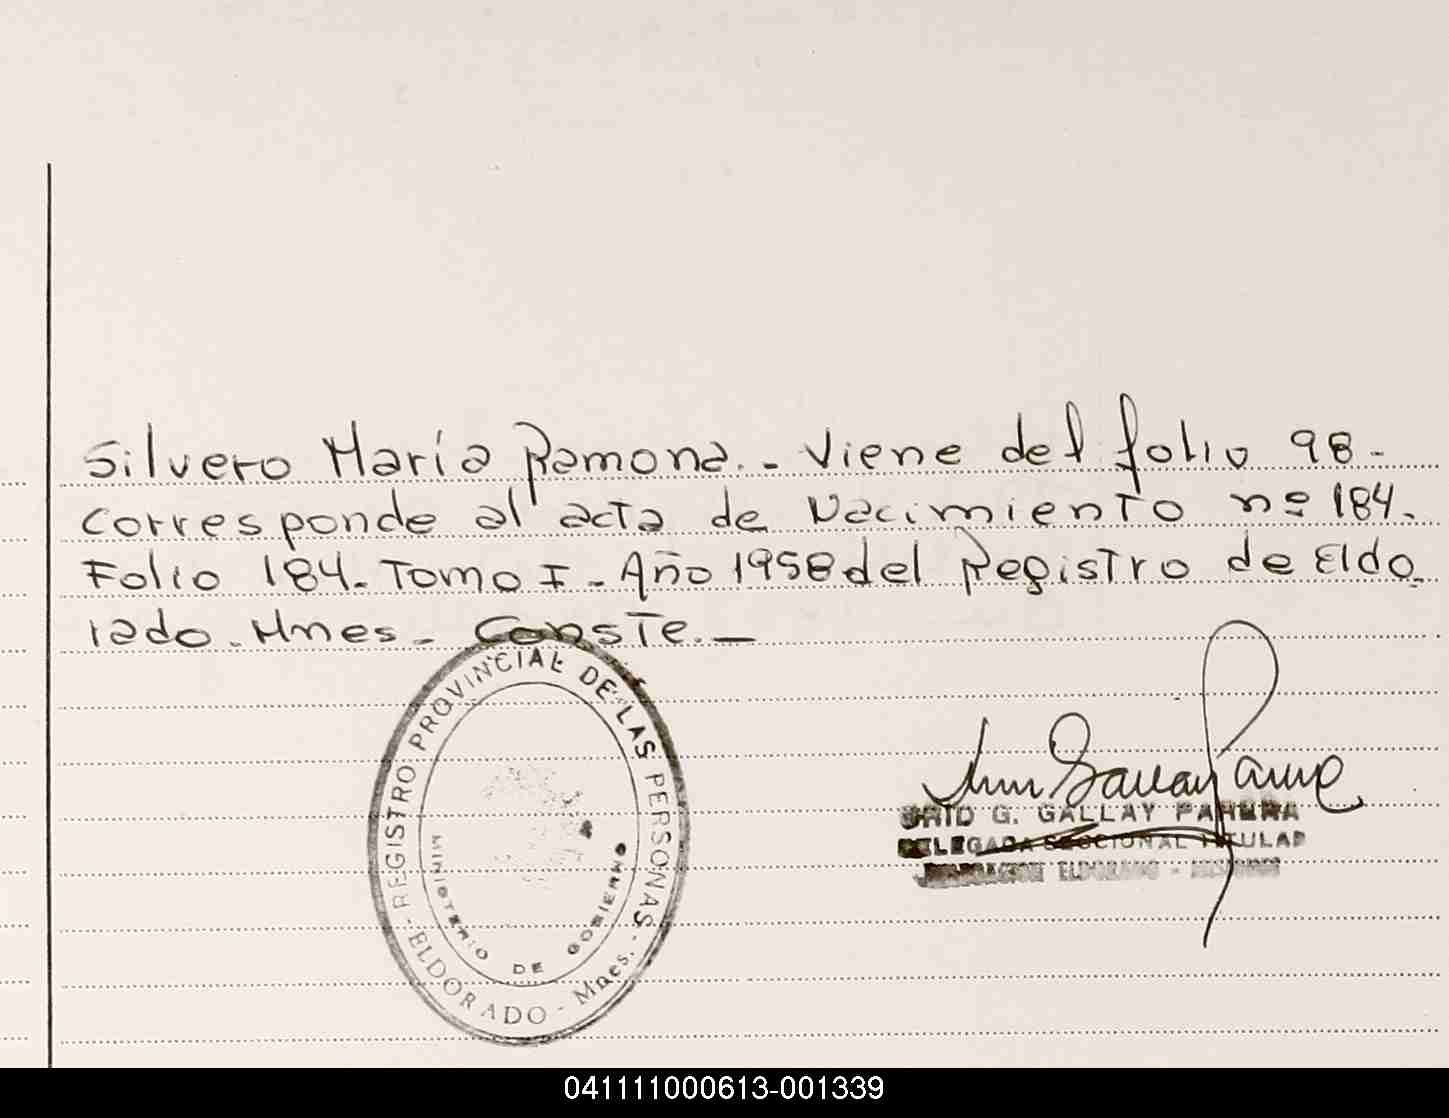 Silvero María Ramona.- Viene del folio 98-
Corresponde al acta de Nacimiento nº 184.
Folio 184. Tomo I - Año 1958 del Registro de Eldo
rado. Mnes- Conste.-
REGISTRO PROVINCIAL DE LAS PERSONAS
- ELDORADO - Mnes. -
MINISTERIO DE GOBIERNO
G. GALLAY PARERA
DELEGADA SECCIONAL TITULAR
ELDORADO -
041111000613-001339